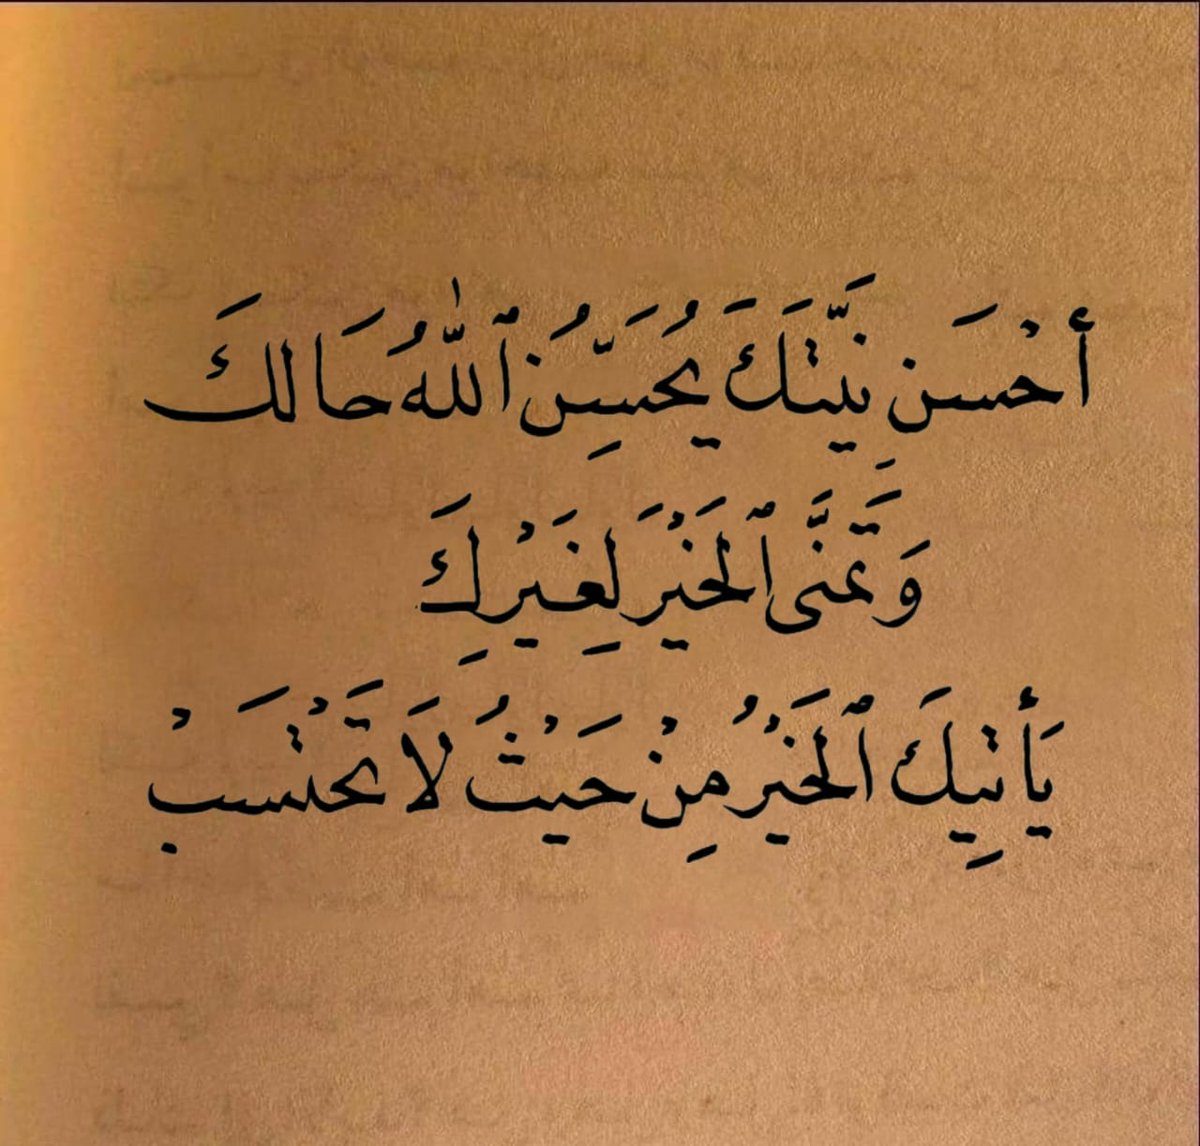 أَحْسَنِ نِيَّتَكَ يُحَسِّنُ ٱللَّٰهُ حَالَكَ
وَتَمَنَّى ٱلْخَيْرَ لِغَيْرِكَ
يَأْتِيكَ ٱلْخَيْرُ مِنْ حَيْثُ لَا تَحْتَسَبْ